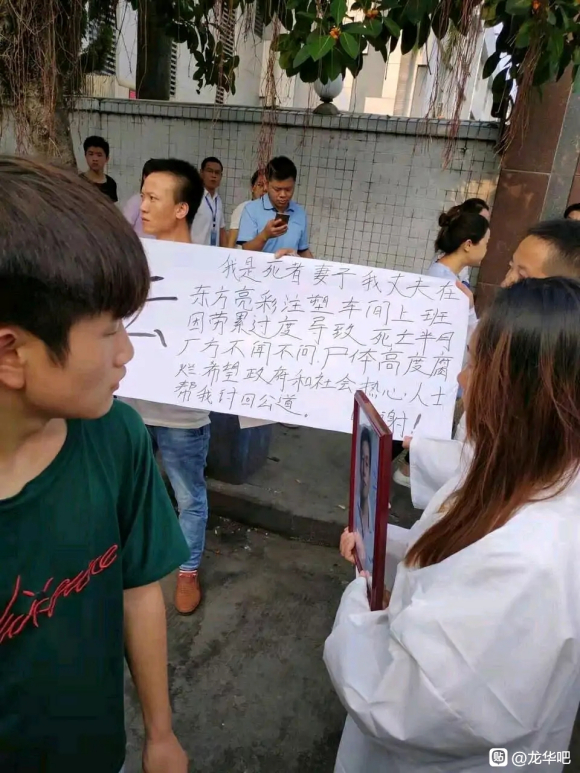 我是死者妻子我丈夫在
东方亮彩注塑车间上班
因劳累过度导致死亡半月
厂方不闻不问.尸体高度腐
烂希望政府和社会热心.人士
帮我讨回公道。 谢!
贴 @龙华吧